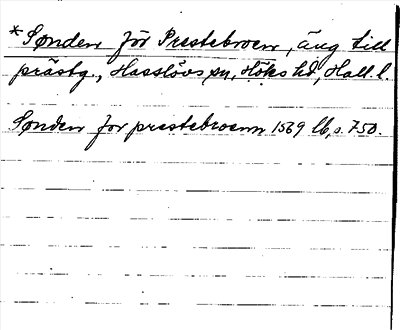 *Sønden för Prestebroen, äng till
prästg., Hasslövs sn, Höks hd, Hall. l.
Sønden for prestebroenn 1569 lb, s. 750.